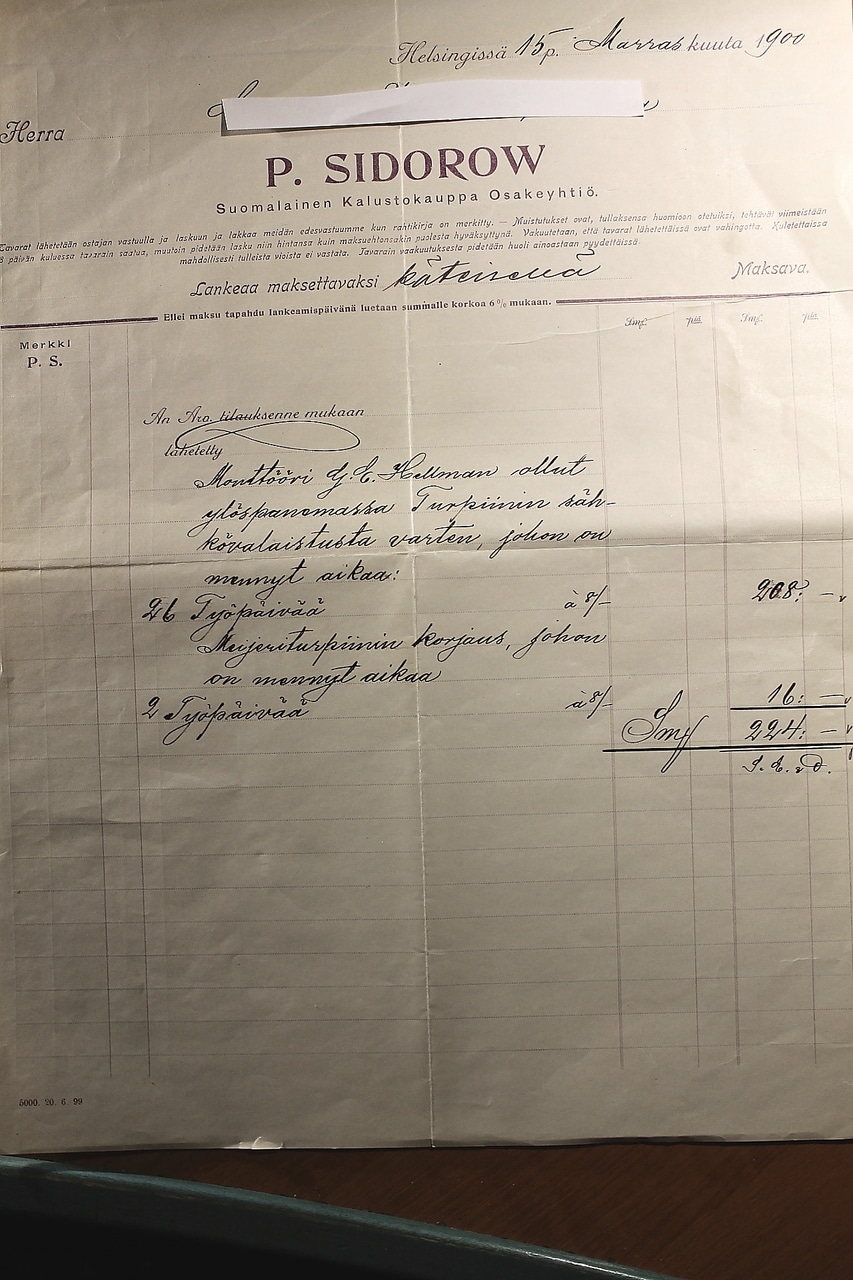 Helsingissä 15 p. Marraskuuta 1900
Herra
P. SIDOROW
Suomalainen Kalustokauppa Osakeyhtiö.
Tavarat lähetetään ostajan vastuulla ja laskuun ja lakkaa meidän edesvastuumme kun rahtikirja on merkitty. — Muistutukset ovat, tullaksensa huomioon otetuiksi, tehtävät viimeistään
8 päivän kuluessa tavarain saatua, muutoin pidetään lasku niin hintansa kuin maksuehtonsakin puolesta hyväksyttynä. Vakuutetaan, että tavarat lähetettäissä ovat vahingotta. Kuletettaissa
mahdollisesti tulleista vioista ei vastata. Tavarain vaakuutuksesta pidetään huoli ainoastaan pyydettäissä.
Lankeaa maksettavaksi käteisellä Maksava.
Ellei maksu tapahdu lankeamispäivänä luetaan summalle korkoa 6 % mukaan.
Merkki Smf. piä Smf. piä
P. S.
An Arv. tilauksenne mukaan
lähetetty
Monttööri G. E. Hellman ollut
ylöspanemassa Turpiinin säh-
kövalaistusta varten, johon on
mennyt aikaa:
26 Työpäivää à 8/– 208: –
Meijeriturpiinin korjaus, johon
on mennyt aikaa
2 Työpäivää à 8/– 16: –
Smf 224: –
S. E. & O.
5000. 20. 6. 99